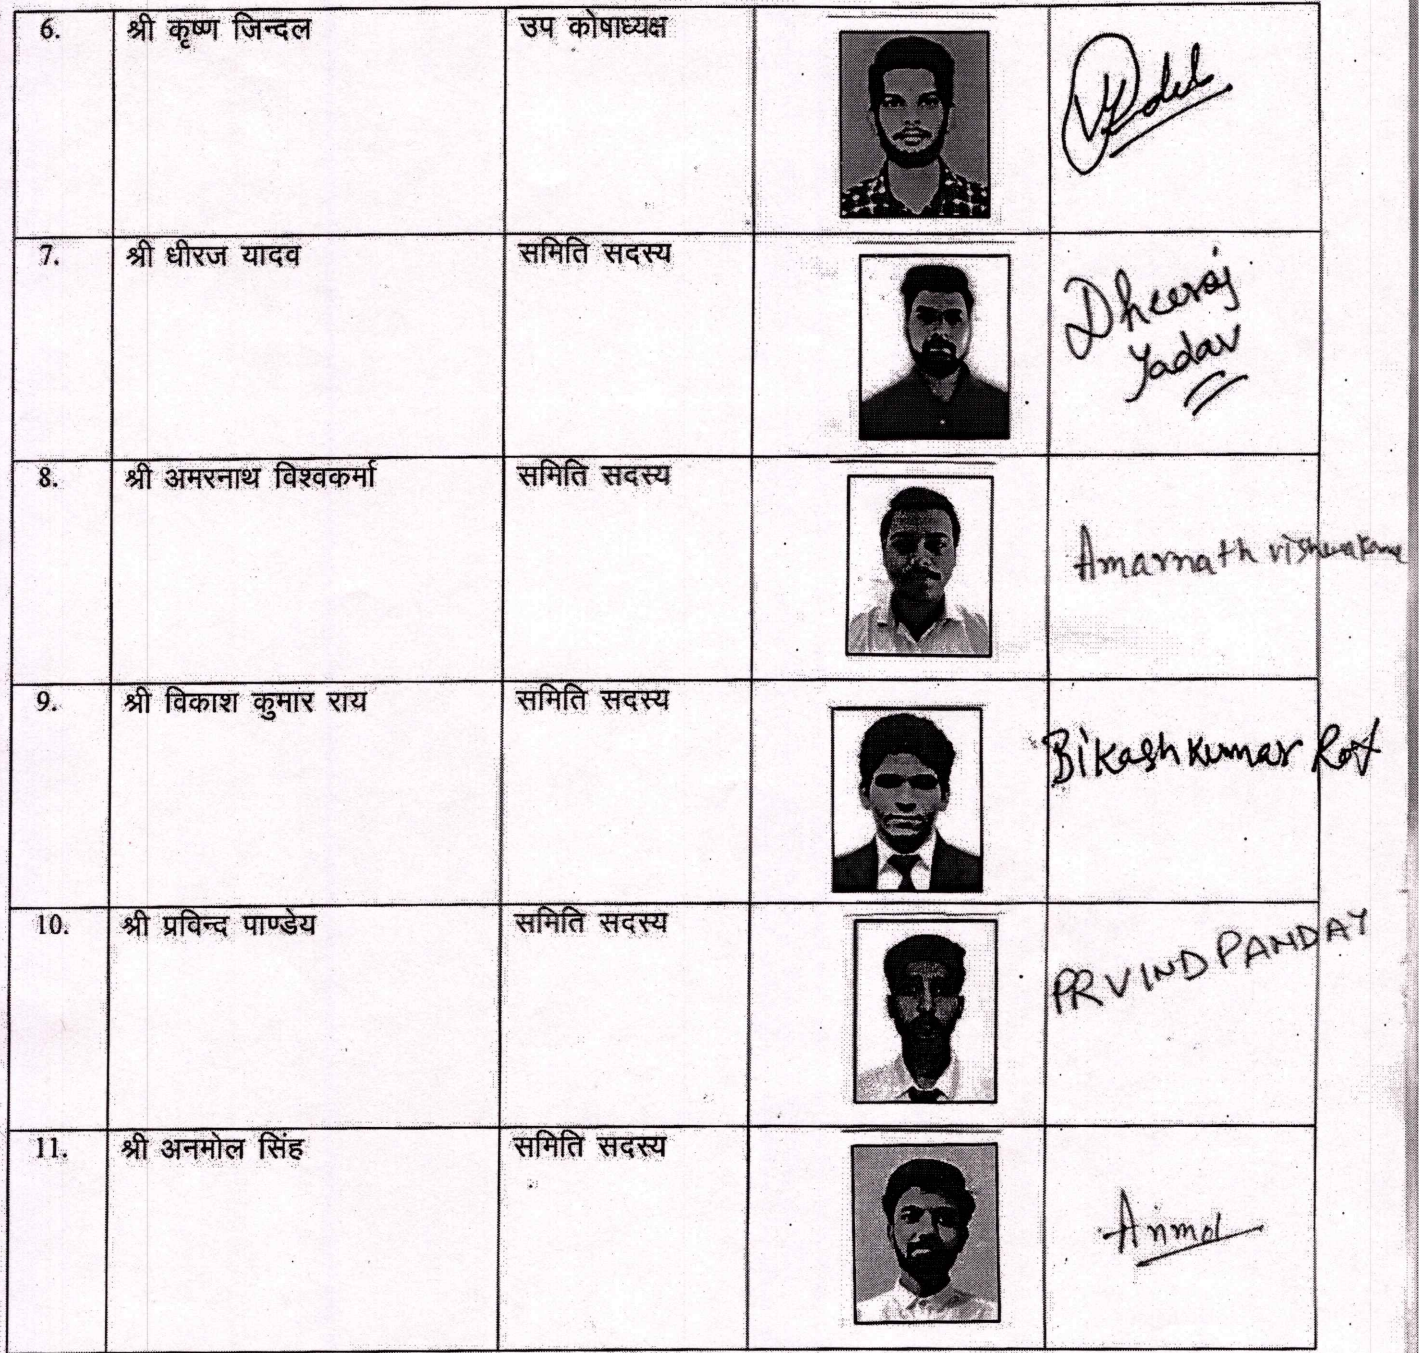 6. श्री कृष्ण जिन्दल उप कोषाध्यक्ष
7. श्री धीरज यादव समिति सदस्य Dheeraj
Yadav
8. श्री अमरनाथ विश्वकर्मा समिति सदस्य Amarnath
9. श्री विकाश कुमार राय समिति सदस्य Bikash Kumar
10. श्री प्रविन्द पाण्डेय समिति सदस्य PRVIND PANDAY
11. श्री अनमोल सिंह समिति सदस्य Anmol